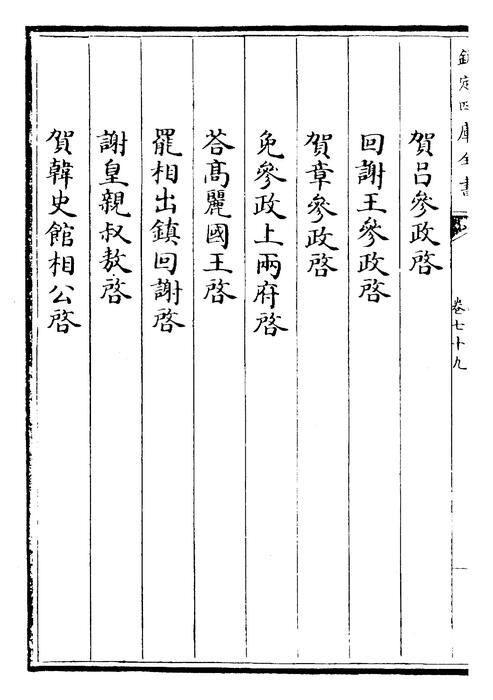 欽定四庫全書
卷七十九
賀吕參政啓
回謝王參政啓
賀章參政啓
免參政上兩府啓
荅髙麗國王啓
罷相出鎮回謝啓
謝皇親叔敖啓
賀韓史館相公啓